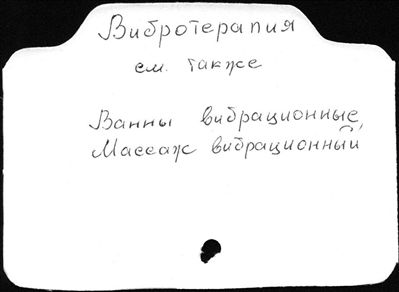 Вибротерапия
см. также
Ванны вибрационные,
Массаж вибрационный